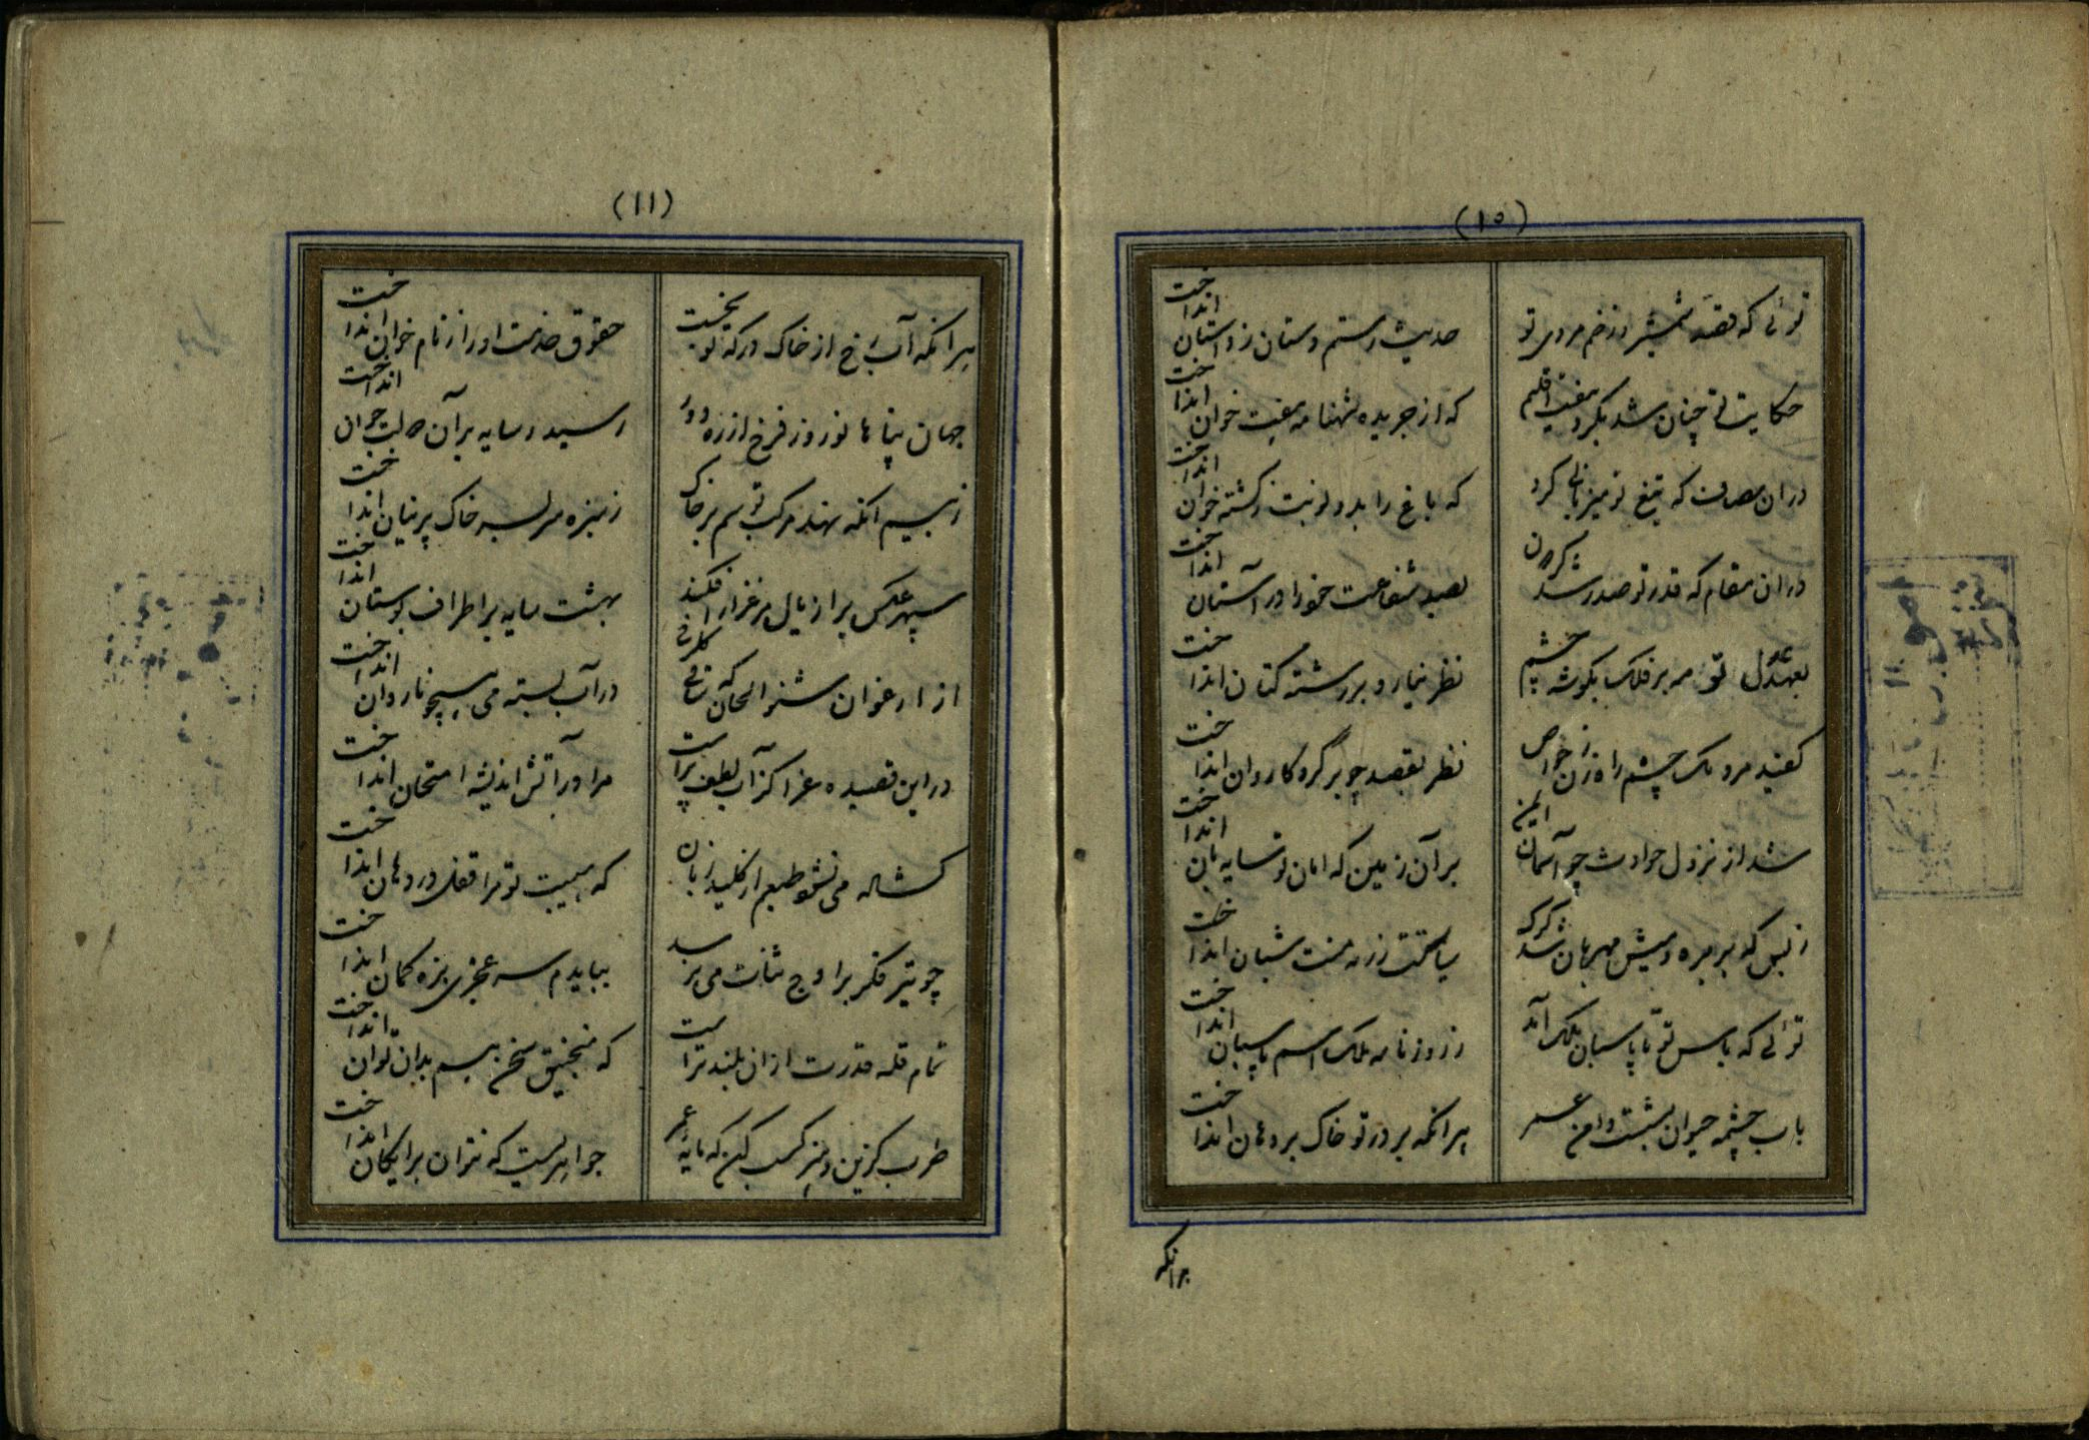 (۱۰)
توئی که قصهٔ شمشیر و زخم مردی تو
حدیث رستم دستان ز داستان انداخت
حکایت تو چنان شد بگرد هفت اقلیم
که از جریده شهنامه هفت خوان انداخت
دران مصاف که تیغ تو میزبانی کرد
که باغ را بدو نوبت ز کشته خوان انداخت
دران مقام که قدر تو صدر شد گردون
بصد شفاعت خود را در آستان انداخت
بعهد عدل تو مه بر فلک بگوشه چشم
نظر نیارد بر رشته کتان انداخت
کفید مردمک چشم راه زن ز خواص
نظر بقصد چو بر گرد کاروان انداخت
شد از نزول حوادث چو آسمان ایمن
بر آن زمین که امان تو سایه بان انداخت
ز بس که بر بره و میش مهربان شد گرگ
سیاستت ز رمه منت شبان انداخت
توئی که پاس تو تا پاسبان ملک آمد
ز روزنامه ملک اسم پاسبان انداخت
باب چشمه حیوان بشست دامن عمر
هرانکه بر در تو خاک بر دهان انداخت
هرانکه
(۱۱)
هرانکه آب رخ از خاک درکه تو بخست
حقوق خدمت او را ز نام خوان انداخت
جهان پناها نوروز فرخ از ره دور
رسید و سایه بر آن حالت جوان انداخت
ز بیم انکه نهد مرکب تو سم بر خاک
ز سبزه بر سر خاک پرنیان انداخت
سپهر عکس بر از بال مرغزار افکند
بهشت سایه بر اطراف بوستان انداخت
از ارغوان شنو الحان که کلرخی
در آب بسته می همچو ناردان انداخت
در این قصیده غرا کز آب لطف پر است
مرا در آتش اندیشه امتحان انداخت
کشاده می نشود طبعم از کلید زبان
که هیبت تو مرا قفل در دهان انداخت
چو تیر فکر بر اوج ثنات می نرسد
ببایدم سه عجزی بزه کمان انداخت
تمام قله قدرت ازان بلند تر است
که منجنیق سخن بیم بدان توان انداخت
طرب کزین و هنر کسب کن که مایه عمر
جواهریست که نتوان برایکان انداخت